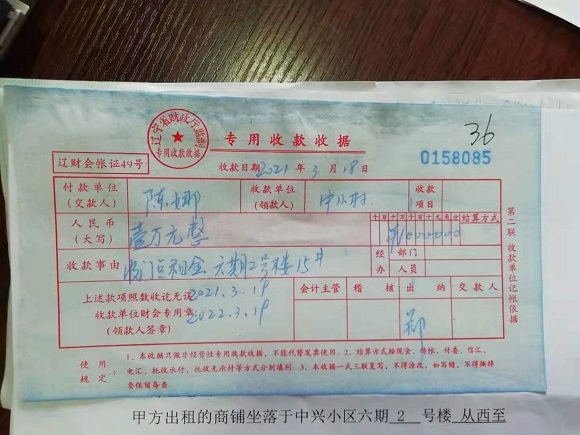 36
辽宁省财政厅监制
专用收款收据
专用收款收据
辽财会帐证49号
收款日期2021年3月18日
0158085
付款单位
(交款人)
陈
收款单位
(领款人)
收款
项目
人民币
(大写)
壹万元整
千百十万千百十元角分
结算方式
¥1000000
收款事由
租金 六期2号楼15#
经 部门
办 人员
上述款项照数收讫无误
收款单位财会专用章:
(领款人签章)
2021.3.19
2022.3.19
会计主管
稽核
出纳
交款人
郑
第二联 收款单位记帐依据
使用
规定:
1、本收据只做非经营性专用收款收据,不能代替发票使用。2、结算方式按现金、转帐、付委、信汇、
电汇、托收承付、托收无承付等方式分别填列。3、本收据一式三联复写,不得涂改,如写错,不得撕掉
要保留备查
甲方出租的商铺坐落于中兴小区六期 2 号楼 从西至